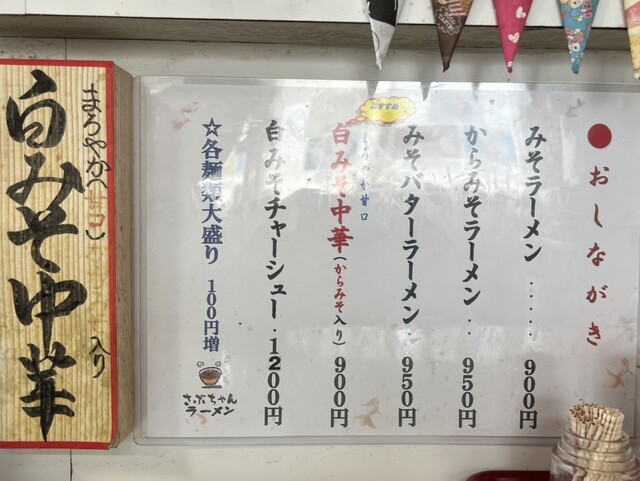 ●おしながき
みそラーメン ･････ 900円
からみそラーメン ･･ 950円
みそバターラーメン ･ 950円
おすすめ
まろやか甘口
白みそ中華(からみそ入り) 900円
白みそチャーシュー ･ 1200円
☆各麺類大盛り 100円増
さぶちゃん
ラーメン
まろやか(甘口)
白みそ中華
入り